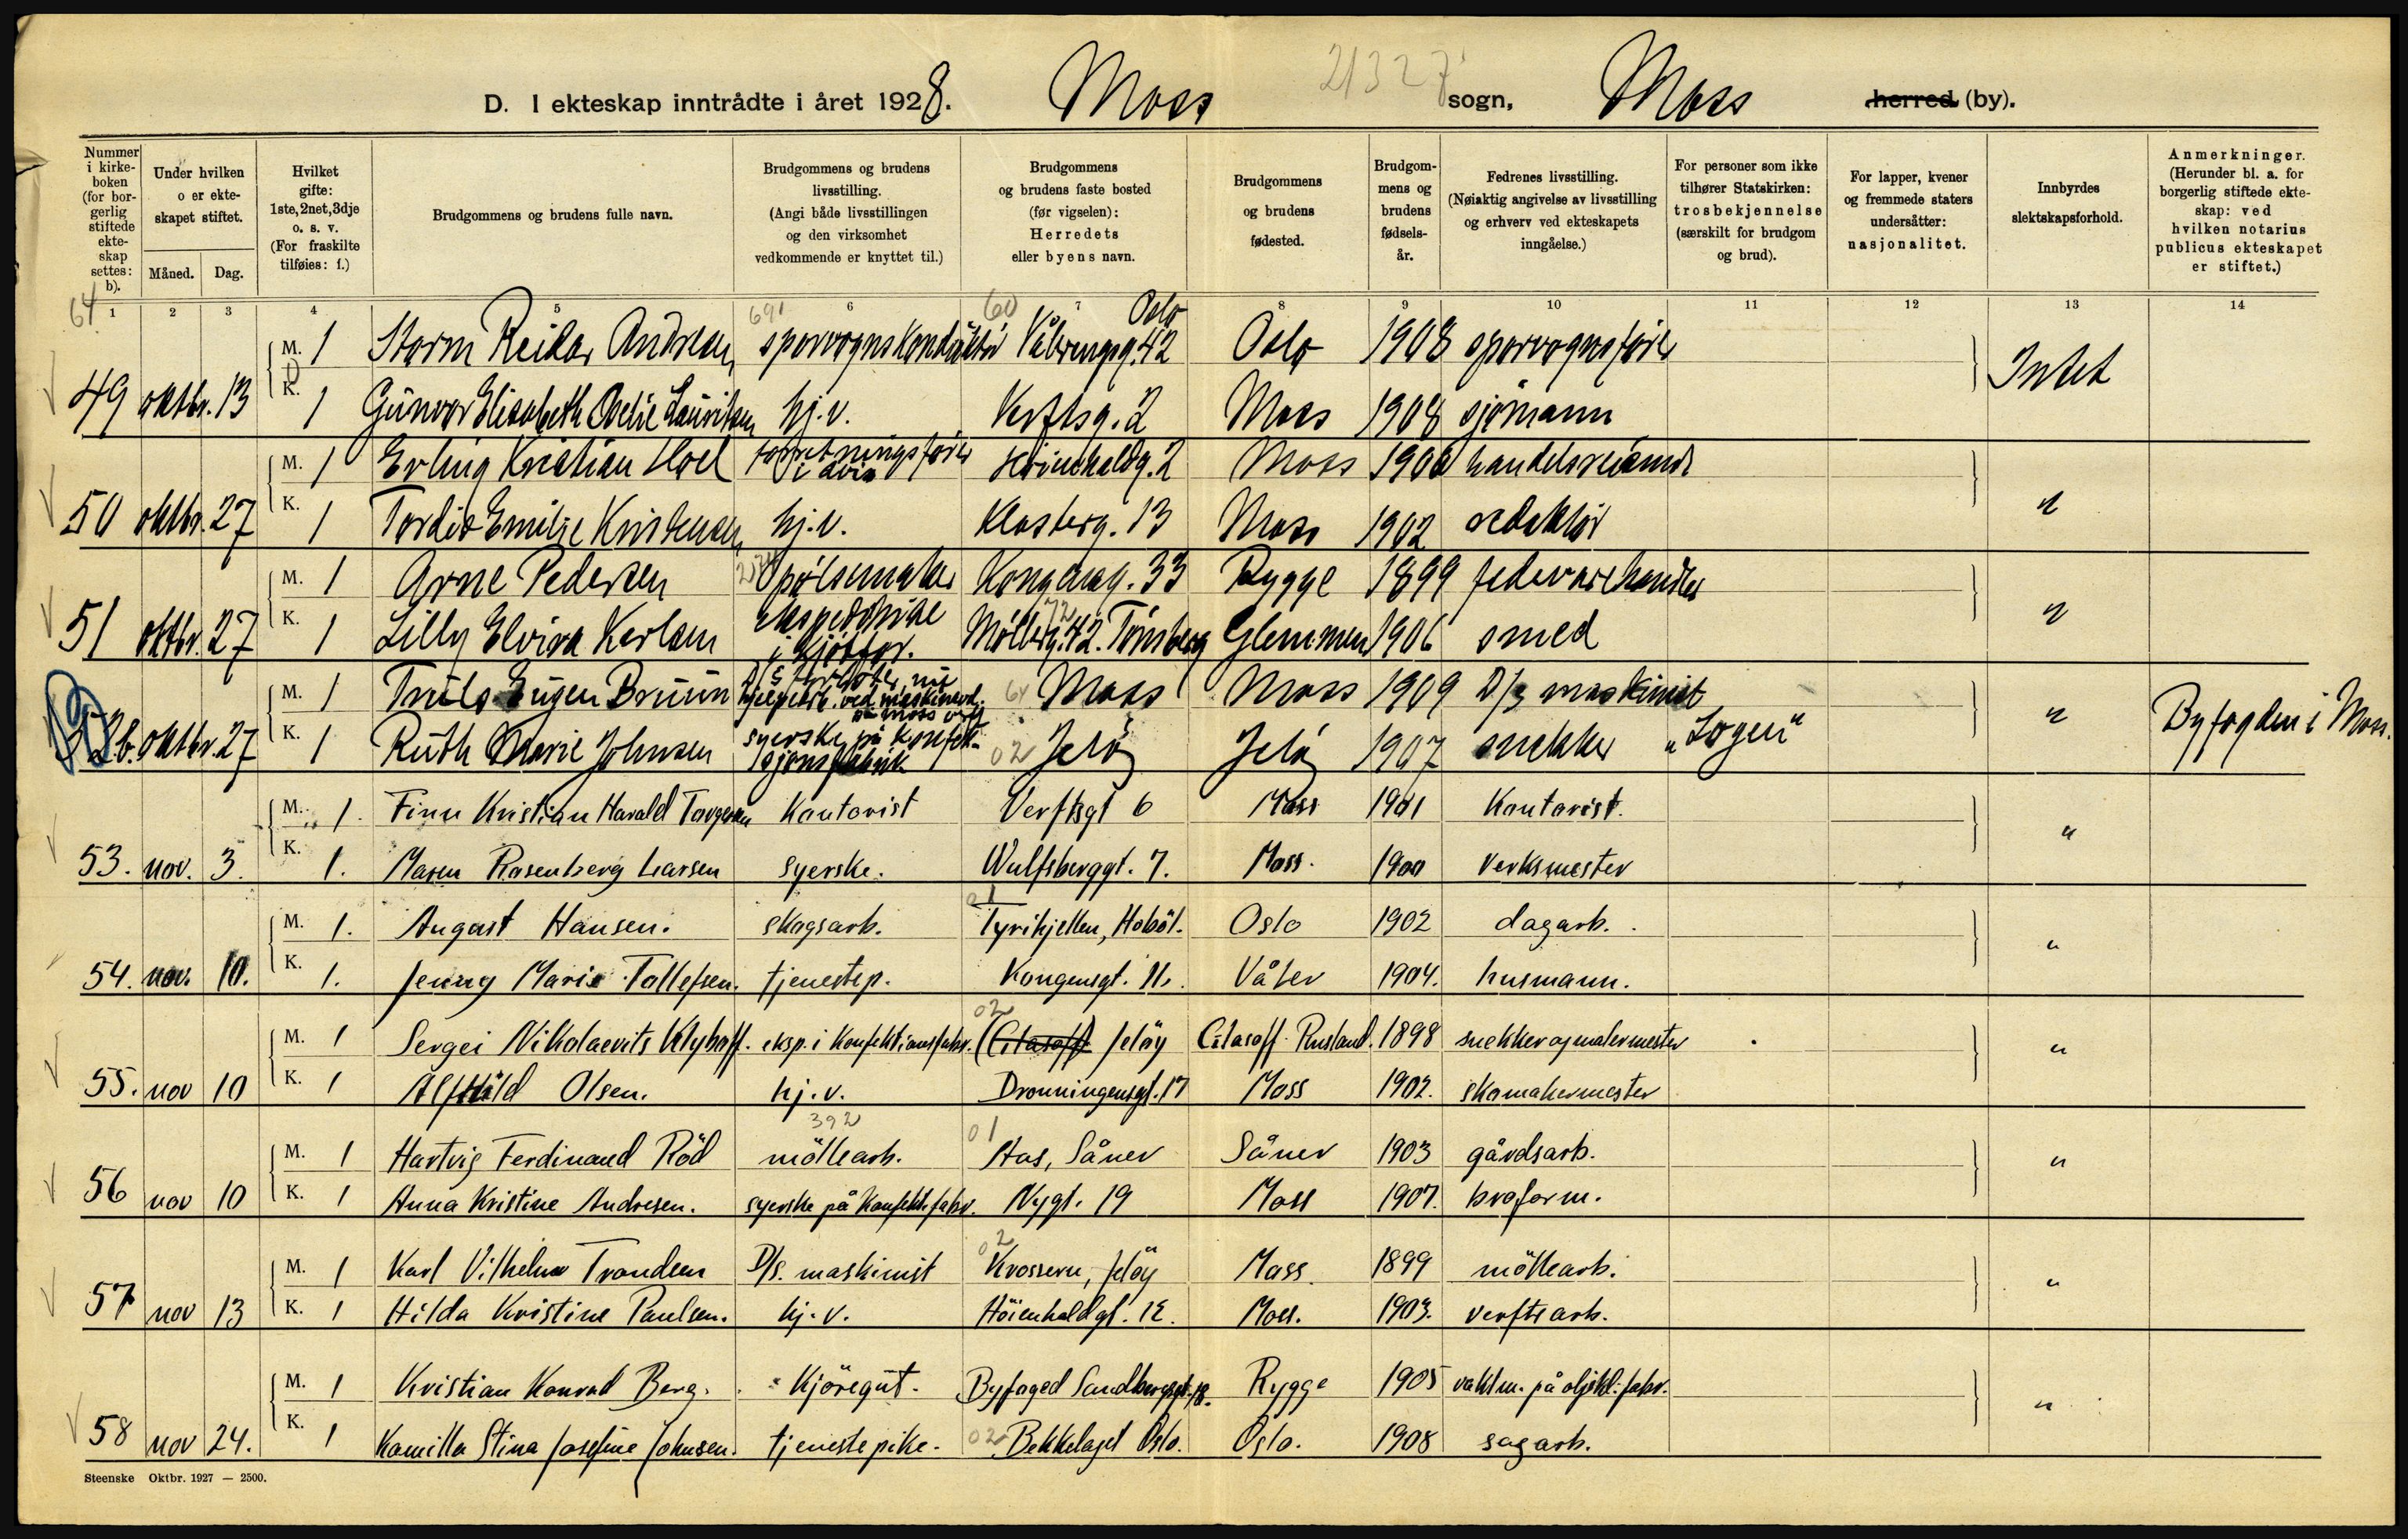 21327
D. I ekteskap inntrådte i året 1928. Moss sogn, Moss herred (by).
Nummer i kirkeboken (for borgerlig stiftede ekteskap settes: b).
Under hvilken o er ekteskapet stiftet.
Måned. Dag.
Hvilket gifte: 1ste, 2net, 3dje o. s. v. (For fraskilte tilføies: f.)
Brudgommens og brudens fulle navn.
Brudgommens og brudens livsstilling. (Angi både livsstillingen og den virksomhet vedkommende er knyttet til.)
Brudgommens og brudens faste bosted (før vigselen): Herredets eller byens navn.
Brudgommens og brudens fødested.
Brudgommens og brudens fødselsår.
Fedrenes livsstilling. (Nøiaktig angivelse av livsstilling og erhverv ved ekteskapets inngåelse.)
For personer som ikke tilhører Statskirken: trosbekjennelse (særskilt for brudgom og brud).
For lapper, kvener og fremmede staters undersåtter: nasjonalitet.
Innbyrdes slektskapsforhold.
Anmerkninger. (Herunder bl. a. for borgerlig stiftede ekteskap: ved hvilken notarius publicus ekteskapet er stiftet.)
64 1 2 3 4 5 6 7 8 9 10 11 12 13 14
691 60 Oslo
M. 1 Storm Reidar Andresen sporvognskonduktør Vålerengsg. 42 Oslo 1908 sporvognsfører Intet
49 oktbr. 13 K. 1 Gunvor Elisabeth Oselie Lauritsen hj.v. Verftsg. 2 Moss 1908 sjømann
M. 1 Erling Kristian Hoel forretningsfører i avis Høienhaldg. 2 Moss 1900 handelsreisende "
50 oktbr. 27 K. 1 Tordis Emilie Kristensen hj.v. Klosterg. 13 Moss 1902 redaktør
M. 1 Arne Pedersen Pølsemaker Kongensg. 33 Rygge 1899 fedevarehandler "
51 oktbr. 27 K. 1 Lilly Elvira Karlsen ekspeditrise i kjøtfor. Møllerg. 42. Tønsberg Glemmen 1906 smed
M. 1 Truls Eugen Bruun D/S fyrbøter, nu hjelpearb. ved maskinavd. på Moss v. 64 Moss Moss 1909 D/s maskinist "
52b. oktbr. 27 K. 1 Ruth Marie Johnsen syerske på konfeksjonsfabrik 02 Jeløy Jeløy 1907 snekker "Logen" Byfogden i Moss.
M. 1. Finn Kristian Harald Torgersen Kontorist Verftsgt 6 Moss 1901 Kontorist. "
53. nov. 3. K. 1. Maren Rosenberg Larsen syerske. Wulfsberggt. 7. Moss. 1900 verksmester
01
M. 1. August Hansen. skogsarb. Tyrihjellen, Hobøl. Oslo 1902 dagarb. "
54. nov. 10. K. 1. Jenny Marie Tollefsen. tjenestep. Kongensgt. 11. Våler 1904. husmann.
02
M. 1 Sergei Nikolaevits Klyhoff. eksp. i Konfektionsfabr. (Citasoff) Jeløy Citasoff Rusland. 1898 snekker og malermester "
55. nov 10 K. 1 Alfhild Olsen. hj.v. Dronningensgt. 17 Moss 1902. skomakermester
392 01
M. 1 Hartvig Ferdinand Röd mölllearb. Stas, Såner Såner 1903 gårdsarb. "
56 nov 10 K. 1 Anna Kristine Andresen. syerske på Konfekt.fabr. Nygt. 19 Moss 1907. broform.
02
M. 1 Karl Vilhelm Trondsen D/s. maskinist Krossern, Jelöy Moss 1899 möllearb. "
57 nov 13 K. 1 Hilda Kristine Paulsen. hj.v. Höienhaldgt. 12. Moss. 1903. verftsarb.
M. 1 Kristian Konrad Berg. Kjöregut. Byfoged Sandberggt. 18. Rygge 1905 vaktm. på oljekl.fabr. "
58 nov 24. K. 1 Kamilla Stina Josefine Johnsen. tjenestepike. 02 Bekkelaget Oslo. Oslo. 1908 sagarb.
Steenske Oktbr. 1927 — 2500.